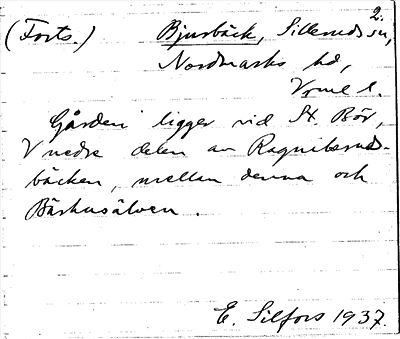 2.
(Forts.) Bjurbäck, Sillerud sn,
Nordmarks hd,
Vrml l.
Gården ligger vid St. Bör,
V nedre delen av Ragnilsruds-
bäcken, mellan denna och
Bärhusälven.
E. Silfors 1937.